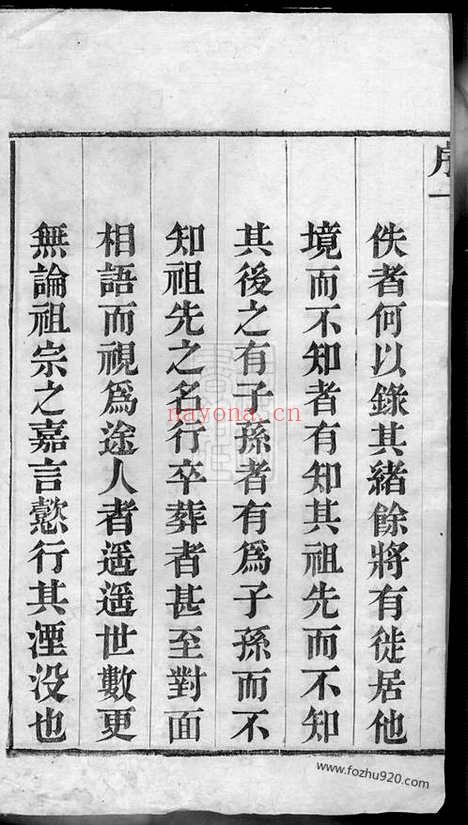 序一
佚者何以錄其緒餘將有徙居他
境而不知者有知其祖先而不知
其後之有子孫者有為子孫而不
知祖先之名行卒葬者甚至對面
相語而視為途人者遥遥世數更
無論祖宗之嘉言懿行其湮没也
nayona.cn
www.fozhu920.com